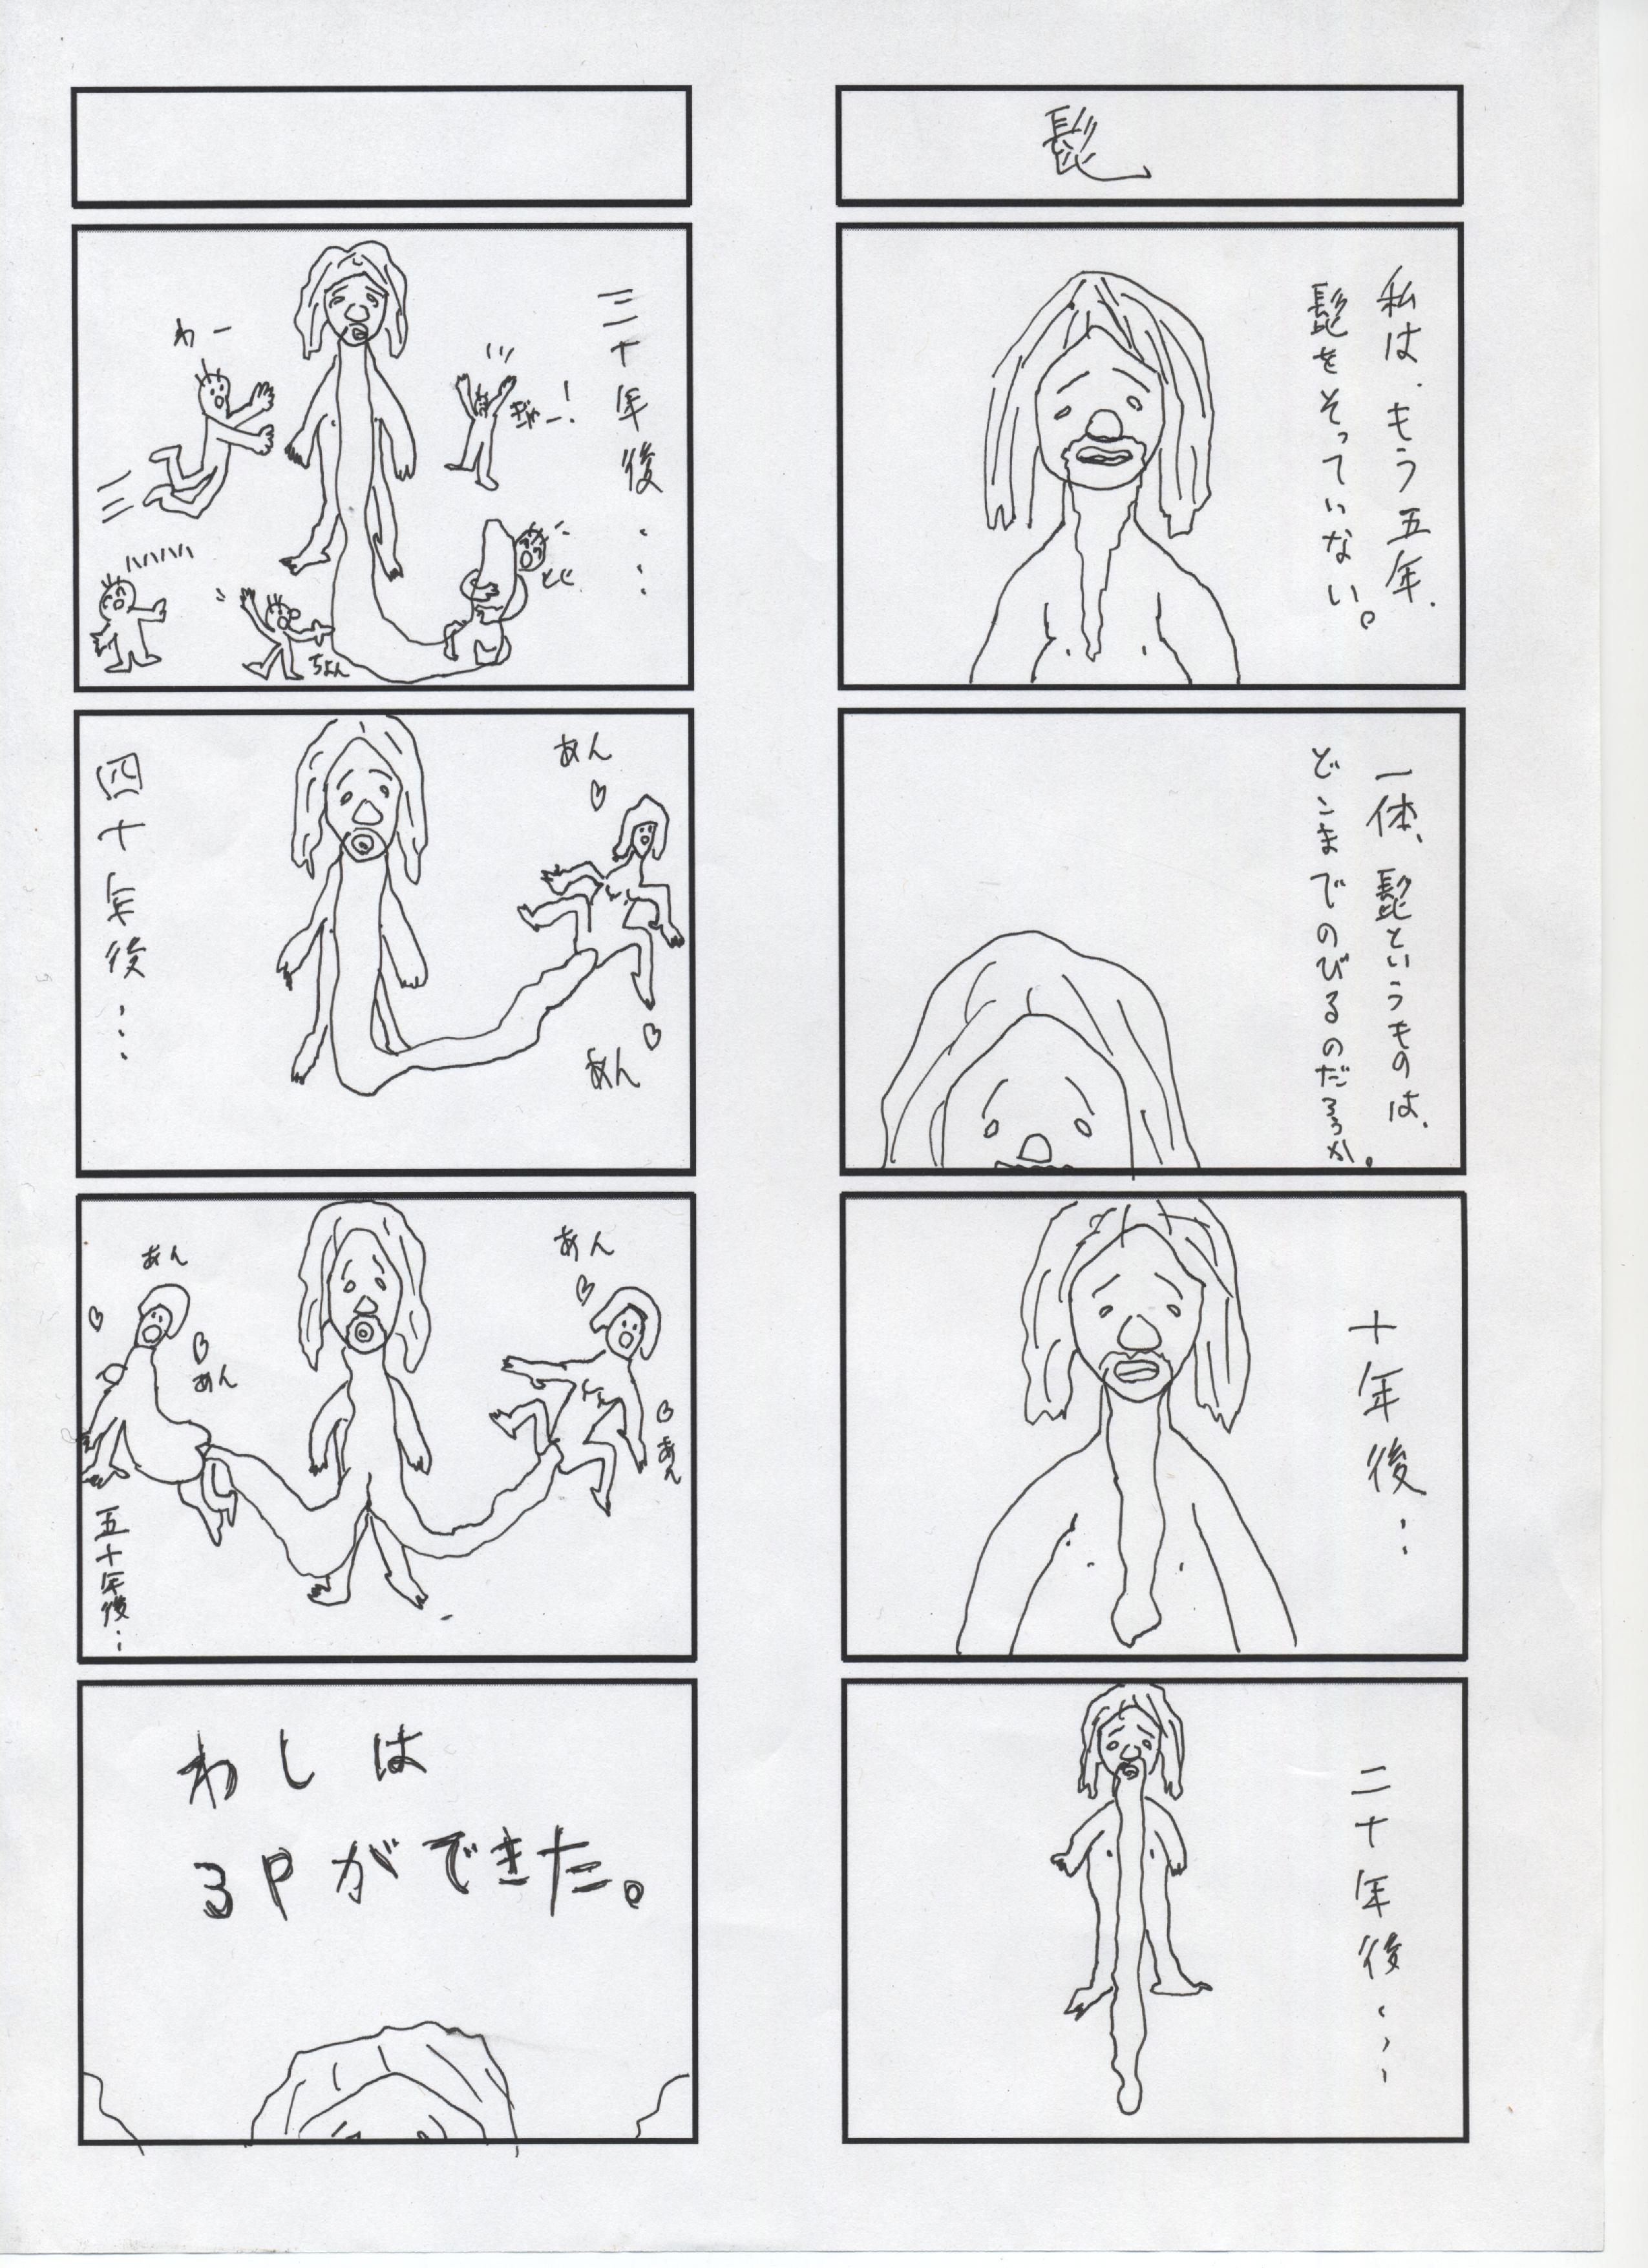 髭
私は、もう五年、
髭をそっていない。
一体、髭というものは、
どこまでのびるのだろうか。
十年後・・
二十年後・・・
三十年後・・・
わー
ぎゃー!
ヒヒ
ちょん
四十年後・・・
あん
あん
あん
あん
あん
あん
五十年後・・
わしは
3Pができた。